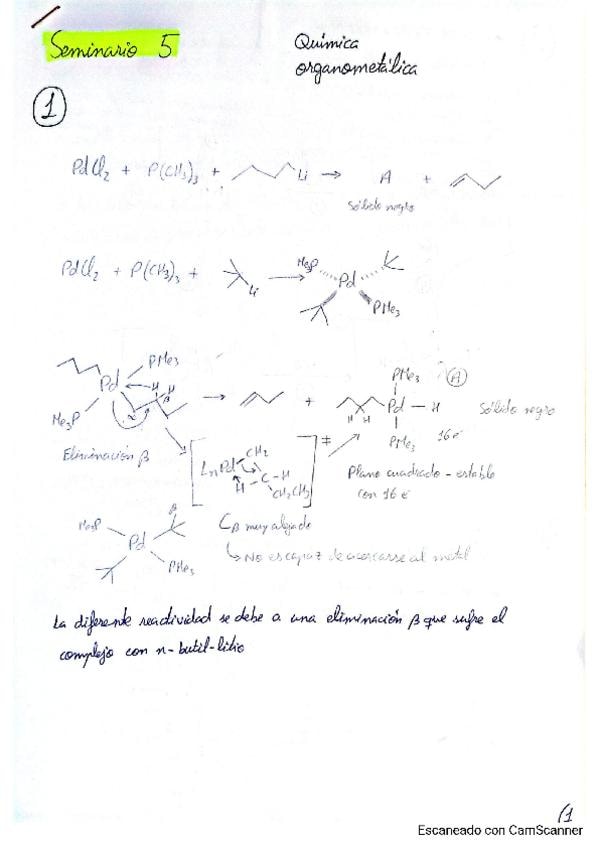 Seminario 5
Química
organometálica
1
PdCl2 + P(CH3)3 + Li → A +
Sólido negro
PdCl2 + P(CH3)3 + Li → Me3P Pd PMe3
PMe3
Pd H H β
Me3P α
→ + PMe3
H H Pd – H
PMe3
A
Sólido negro
16 e⁻
Eliminación β
LnPd CH2 C – H H CH2CH3 ‡
Plano cuadrado – estable
con 16 e⁻
Me3P β
Pd
PMe3
Cβ muy alejado
↳ No es capaz de acercarse al metal
La diferente reactividad se debe a una eliminación β que sufre el
complejo con n-butil-litio
(1
Escaneado con CamScanner